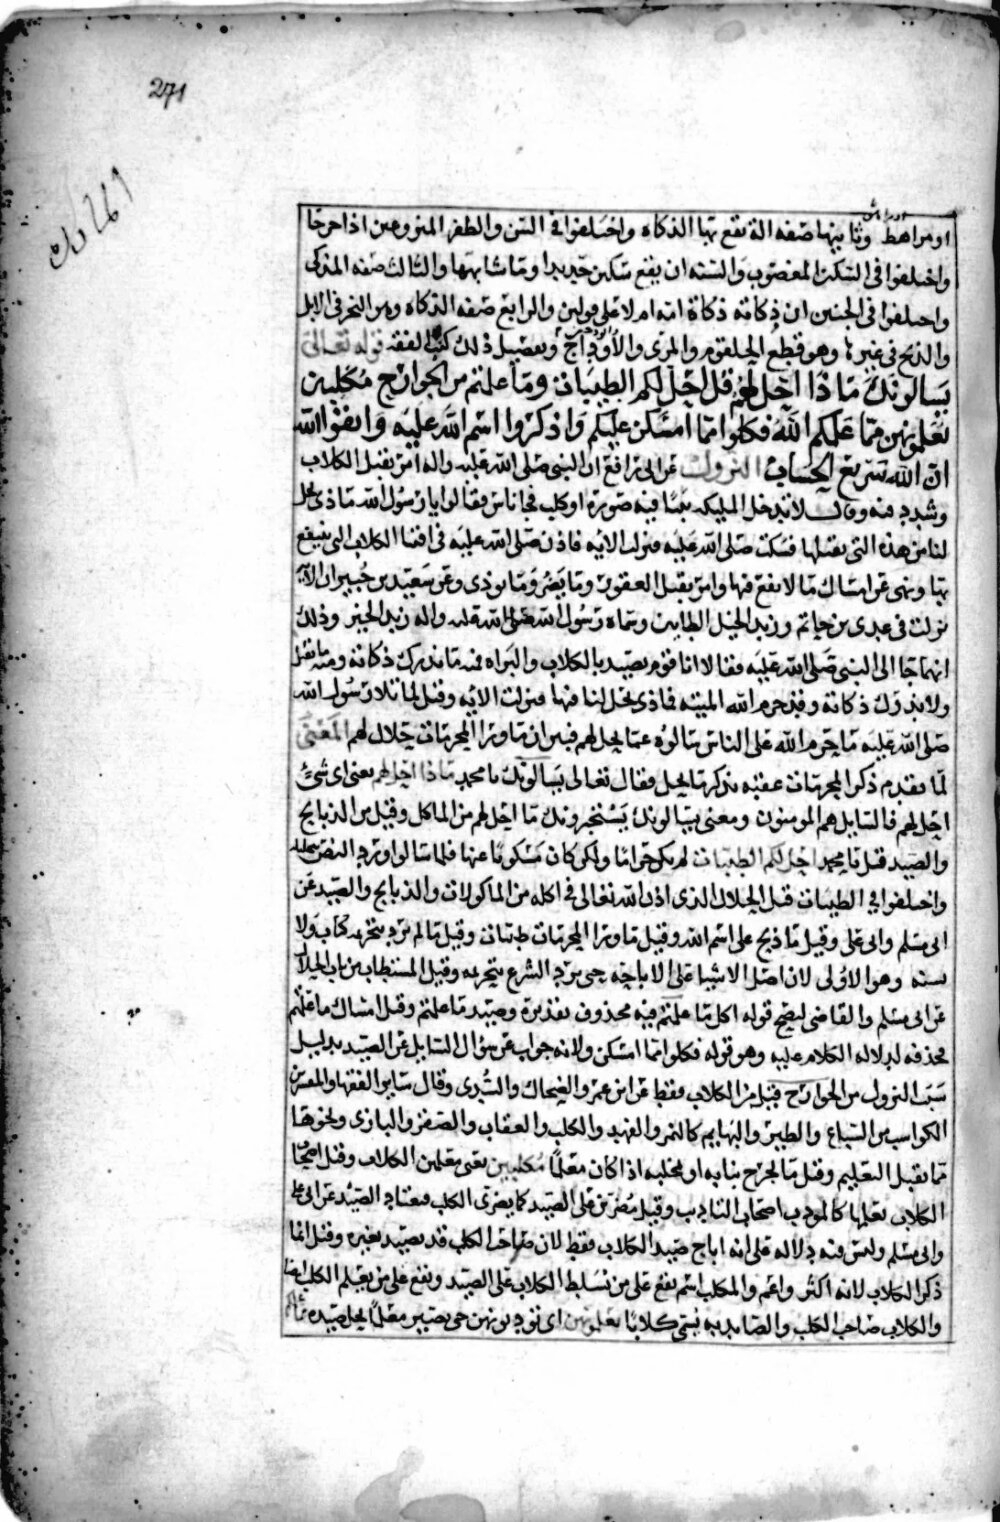 271
المائدة
او مراهط وثانيها صفه الة تقع بها الذكاه واختلفوا في السن والظفر المنزوعين اذا جرحا
واختلفوا في السكين المغصوب والسنه ان يقع سكين حديدا وما شابهها والثالث صفه المذكى
واختلفوا في الجنين ان ذكاته ذكاة امه ام لا على قولين والرابع صفه الذكاه ومن النحر في الابل
والذبح في غيرها وهو قطع الحلقوم والمرى والأوداج وتفصيل ذلك كتب الفقه قوله تعالى
يسالونك ماذا احل لهم قل احل لكم الطيبات وما علمتم من الجوارح مكلبين
تعلمونهن مما علمكم الله فكلوا مما امسكن عليكم واذكروا اسم الله عليه واتقوا الله
ان الله سريع الحساب النزول عن ابى رافع ان النبى صلى الله عليه واله امر بقتل الكلاب
وشدد فيه وقال لا تدخل المليكه بيتا فيه صورة او كلب فجا ناس فقالوا يا رسول الله ماذى يحل
لنا من هذه التى تقتلها فسكت صلى الله عليه فنزلت الايه فاذن صلى الله عليه في اقتنا الكلاب التى ينتفع
بها ونهى عن امساك ما لا نفع فيها وامر بقتل العقور وما يضر وما يوذى وعن سعيد بن جبير ان الآية
نزلت في عدى بن حاتم وزيد الخيل الطايين وسماه رسول الله صلى الله عليه واله زيد الخير وذلك
انهما جا الى النبى صلى الله عليه فقالا انا قوم نصيد بالكلاب والبزاه فمنه ما ندرك ذكاته ومنه ما يقتل
ولا ندرك ذكاته وقد حرم الله الميته فماذى يحل لنا منها فنزلت الايه وقيل لما تلا رسول الله
صلى الله عليه ما حرم الله على الناس سالوه عما يحل لهم فبين ان ما ورا المحرمات حلال لهم المعنى
لما تقدم ذكر المحرمات عقبه بذكر ما يحل فقال تعالى يسالونك يا محمد ماذا احل لهم يعنى اى شئ
احل لهم فالسايل هم المومنون ومعنى يسالونك يستخبرونك ما احل لهم من الماكل وقيل من الذبايح
والصيد قل يا محمد احل لكم الطيبات لم يكن حراما ولكن كان مسكوتا عنها فلما سالوا ورد النص بتحليله
واختلفوا في الطيبات قيل الحلال الذى اذن الله تعالى في اكله من الماكولات والذبايح والصيد عن
ابى مسلم وابى على وقيل ما ذبح على اسم الله وقيل ما ورا المحرمات طيبات وقيل ما لم يرد بتحريمه كتاب ولا
سنه وهو الاولى لان اصل الاشيا على الاباحه حتى يرد الشرع بتحريمه وقيل المستطاب من باب الحلال
عن ابى مسلم والقاضى ليصح قوله اكل ما علمتم فيه محذوف تقديره وصيد ما علمتم وقيل امساك ما علمتم
محذفه لدلاله الكلام عليه وهو قوله فكلوا مما امسكن ولانه جواب عن سؤال السايل عن الصيد بدليل
سبب النزول من الجوارح قيل من الكلاب فقط عن ابن عمر والضحاك والسدى وقال ساير الفقها والمفسرين
الكواسب من السباع والطير والبهايم كالنمر والفهد والكلب والعقاب والصقر والبازى ونحوها
مما يقبل التعليم وقيل ما يجرح بنابه او مخلبه اذا كان معلما مكلبين يعنى معلمين الكلاب وقيل اصحاب
الكلاب تعليها كالمودب اصحاب التاديب وقيل مضرين على الصيد كما يضرى الكلب معتاد الصيد عن ابى على
وابى مسلم وليس فيه دلاله على انه اباح صيد الكلاب فقط لان صاحب الكلب قد يصيد بغيره وقيل انما
ذكر الكلاب لانه اكثر واعم والمكلب اسم يقع على من تسليط الكلاب على الصيد ويقع على من يعلم الكلب ايضا
والكلاب صاحب الكلب والصايد به يسمى كلابا تعلمونهن اى تودبونهن حتى يصير معلما يحل صيده